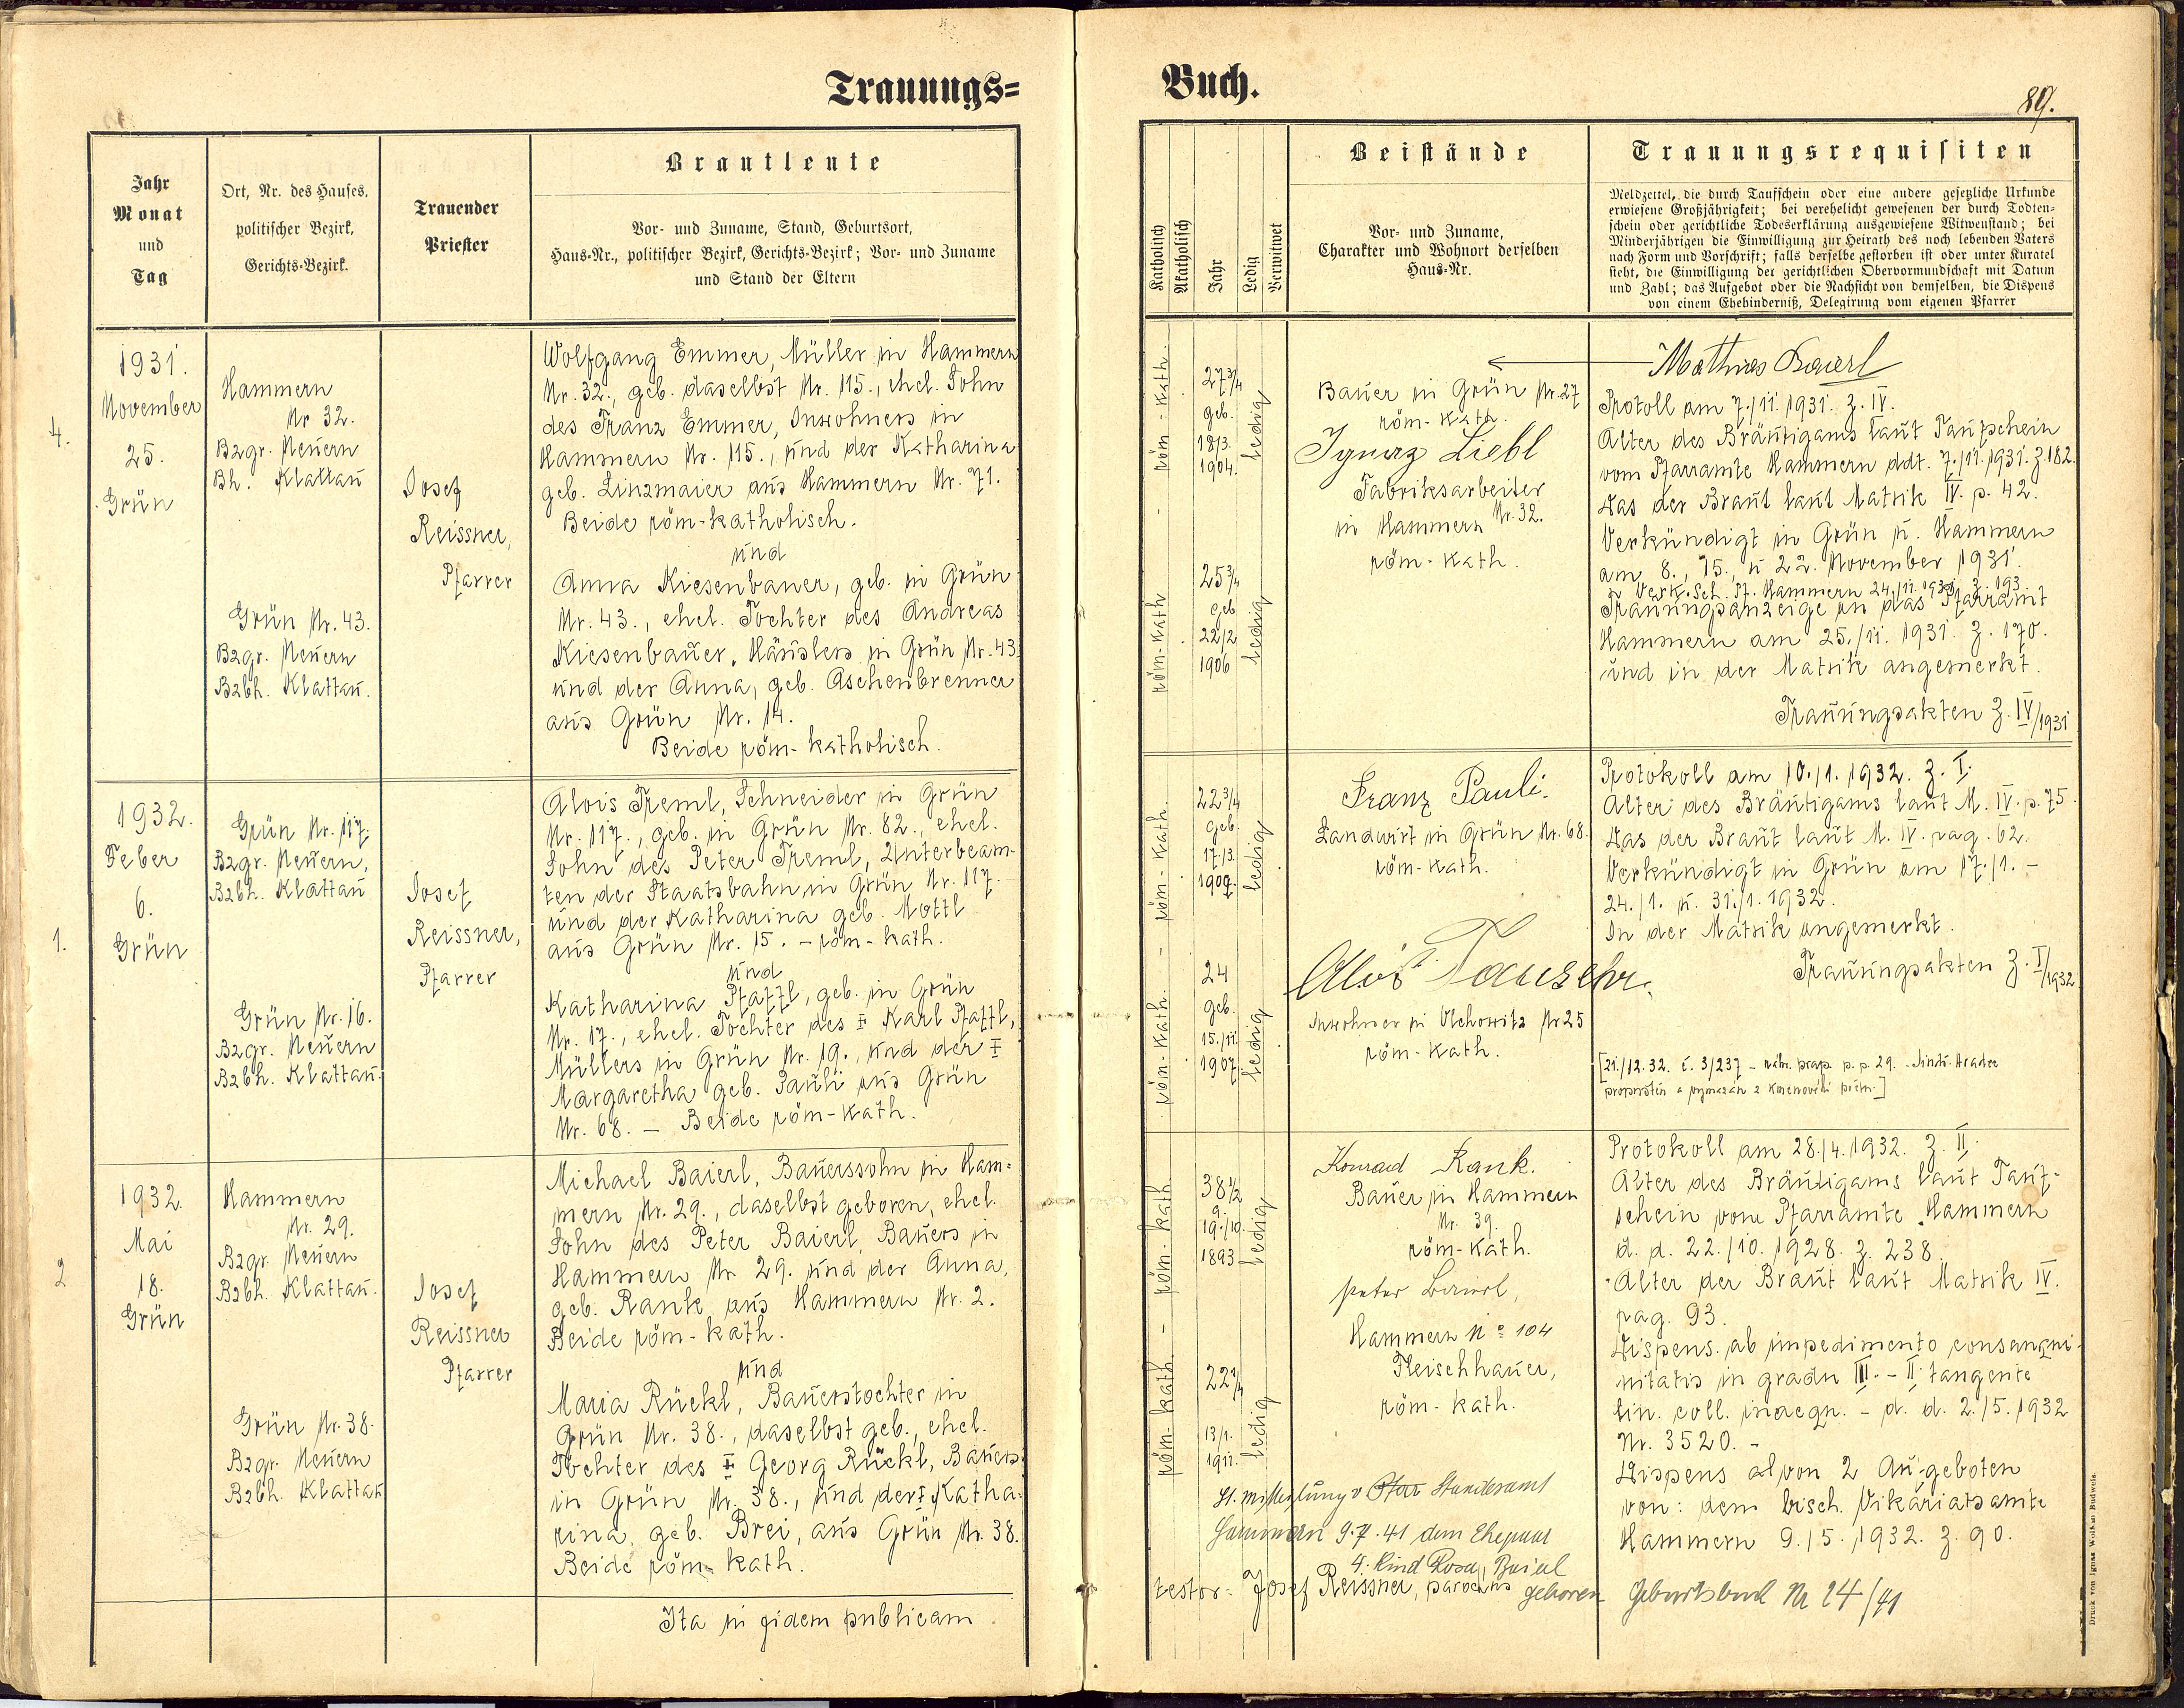 Trauungs=
Jahr
Monat
und
Tag
Ort, Nr. des Hauses,
politischer Bezirk,
Gerichts-Bezirk.
Trauender
Priester
Brautleute
Vor- und Zuname, Stand, Geburtsort,
Haus-Nr., politischer Bezirk, Gerichts-Bezirk; Vor- und Zuname
und Stand der Eltern
4.
1931.
November
25.
Grün
Hammern
Nr 32.
Bzgr. Neuern
Bh. Klattau
Grün Nr. 43.
Bzgr. Neuern
Bzbh. Klattau.
Josef
Reissner,
Pfarrer
Wolfgang Emmer, Müller in Hammern
Nr. 32., geb. daselbst Nr. 115., ehel. Sohn
des Franz Emmer, Inwohners in
Hammern Nr. 115., und der Katharina
geb. Linzmaier aus Hammern Nr. 71.
Beide röm-katholisch.
und
Anna Kiesenbauer, geb. in Grün
Nr. 43., ehel. Tochter des Andreas
Kiesenbauer, Häuslers in Grün Nr. 43.
und der Anna, geb. Aschenbrenner
aus Grün Nr. 14.
Beide röm-katholisch.
1.
1932.
Feber
6.
Grün
Grün Nr. 117.
Bzgr. Neuern,
Bzbh. Klattau
Grün Nr. 16.
Bzgr. Neuern
Bzbh. Klattau.
Josef
Reissner,
Pfarrer
Alois Treml, Schneider in Grün
Nr. 117., geb. in Grün Nr. 82., ehel.
Sohn des Peter Treml, Unterbeam-
ten der Staatsbahn in Grün Nr. 117.
und der Katharina geb. Mottl
aus Grün Nr. 15. - röm-kath.
und
Katharina Pfaffl, geb. in Grün
Nr. 17., ehel. Tochter des ‡ Karl Pfaffl,
Müllers in Grün Nr. 19., und der ‡
Margaretha geb. Pauli aus Grün
Nr. 68. — Beide röm-kath.
2
1932.
Mai
18.
Grün
Hammern
Nr. 29.
Bzgr. Neuern
Bzbh. Klattau.
Grün Nr. 38.
Bzgr. Neuern
Bzbh. Klattau
Josef
Reissner
Pfarrer
Michael Baierl, Bauerssohn in Ham-
mern Nr. 29., daselbst geboren, ehel.
Sohn des Peter Baierl, Bauers in
Hammern Nr. 29. und der Anna,
geb. Rank aus Hammern Nr. 2.
Beide röm-kath.
und
Maria Rückl, Bauerstochter in
Grün Nr. 38., daselbst geb., ehel.
Tochter des ‡ Georg Rückl, Bauers
in Grün Nr. 38., und der ‡ Katha-
rina, geb. Brei, aus Grün Nr. 38.
Beide röm-kath.
Ita in fidem publicam
Buch.
89.
Katholisch
Akatholisch
Jahr
Ledig
Verwitwet
Beistände
Vor- und Zuname,
Charakter und Wohnort derselben
Haus-Nr.
Trauungsrequisiten
Meldzettel, die durch Taufschein oder eine andere gesetzliche Urkunde
erwiesene Großjährigkeit; bei verehelicht gewesenen der durch Todten-
schein oder gerichtliche Todeserklärung ausgewiesene Witwenstand; bei
Minderjährigen die Einwilligung zur Heirath des noch lebenden Vaters
nach Form und Vorschrift; falls derselbe gestorben ist oder unter Kuratel
steht, die Einwilligung der gerichtlichen Obervormundschaft mit Datum
und Zahl; das Aufgebot oder die Nachsicht von demselben, die Dispens
von einem Ehehinderniß, Delegirung vom eigenen Pfarrer
röm-kath.
27 3/4
geb.
18/3.
1904.
ledig
röm-kath
25 3/4
geb
22/2
1906
ledig
Bauer in Grün Nr. 27
röm-kath.
Ignaz Liebl
Fabriksarbeiter
in Hammern Nr. 32.
röm-kath.
Mathias Baierl
Protoll am 7./11. 1931. Z. IV.
Alter des Bräutigams laut Taufschein
vom Pfarramte Hammern ddt. 7./11. 1931. Z. 182.
Das der Braut laut Matrik IV. p. 42.
Verkündigt in Grün u. Hammern
am 8., 15., u 22. November 1931.
Verk. Sch. Pf. Hammern 24./11. 1931, Z. 193.
Trauungsanzeige an das Pfarramt
Hammern am 25./11. 1931. Z. 170.
und in der Matrik angemerkt.
Trauungsakten Z. IV/1931
röm-kath.
22 3/4
geb.
17/3.
1909.
ledig
röm-kath.
24
geb.
15./11.
1907
ledig
Franz Pauli.
Landwirt in Grün Nr. 68.
röm-kath.
Alois Tauscher.
Inwohner in Olchowitz Nr 25
röm-kath.
Protokoll am 10./1. 1932. Z. I.
Alter des Bräutigams laut M. IV. p. 75.
Das der Braut laut M. IV. pag. 62.
Verkündigt in Grün am 17./1. -
24./1. u. 31./1. 1932.
In der Matrik angemerkt.
Trauungsakten Z. I/1932
[21./12. 32. č. 3/237 - p. p. 29. Jindř. Hradec
propuštěn a vymazán z kmenového počtu.]
röm-kath
38 1/2
g.
19./10.
1893
ledig
röm-kath
22 1/4
13/1.
1911.
ledig
Konrad Rank.
Bauer in Hammern
Nr. 39.
röm-kath.
Peter Baierl,
Hammern No 104
Fleischhauer,
röm-kath.
Protokoll am 28./4. 1932. Z. II.
Alter des Bräutigams laut Tauf-
schein vom Pfarramte Hammern
d. d. 22./10. 1928. Z. 238.
Alter der Braut laut Matrik IV.
pag. 93.
Dispens. ab impedimento consangui-
nitatis in gradu III. - II. tangente
lin. coll. inaequ. - d. d. 2./5. 1932
Nr. 3520. -
Dispens al von 2 Aufgeboten
von: dem bisch. Vikariatsamte
Hammern 9./5. 1932. Z. 90.
lt. Mitteilung v Standesamt
Hammern 9.7.41 dem Ehepaar
4. Kind Rosa Baierl
testor: Josef Reissner, parochus geboren Geburtsbuch Nr 24/41
Druck von Ignaz Wolf in Budweis.